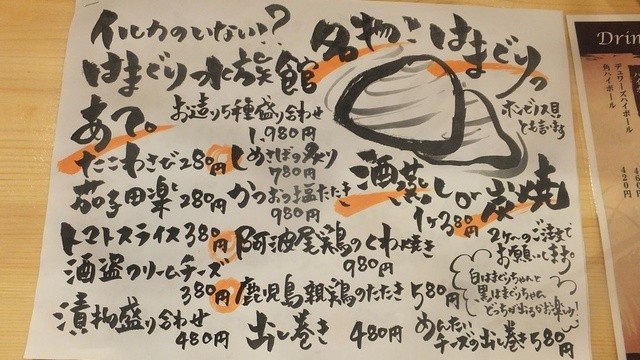 イルカのいない?
はまぐり水族館
あて。
お造り5種盛り合わせ
1,980円
たこわさび280円
茄子田楽280円
トマトスライス380円
酒盗クリームチーズ
380円
漬物盛り合わせ
480円
しめさばの炙り
780円
かつおの塩たたき
980円
阿波尾鶏のくわ焼き
980円
鹿児島親鶏のたたき580円
出し巻き480円
めんたいチーズの出し巻き580円
名物!はまぐり
ホンビノス貝
とも言います
酒蒸しor炭焼
1ヶ380円
2ケ〜のご注文で
お願いします。
白はまぐりちゃんと
黒はまぐりちゃん
どっちが出るかお楽しみ!
Drin
デュワーズハイボール
角ハイボール 420円